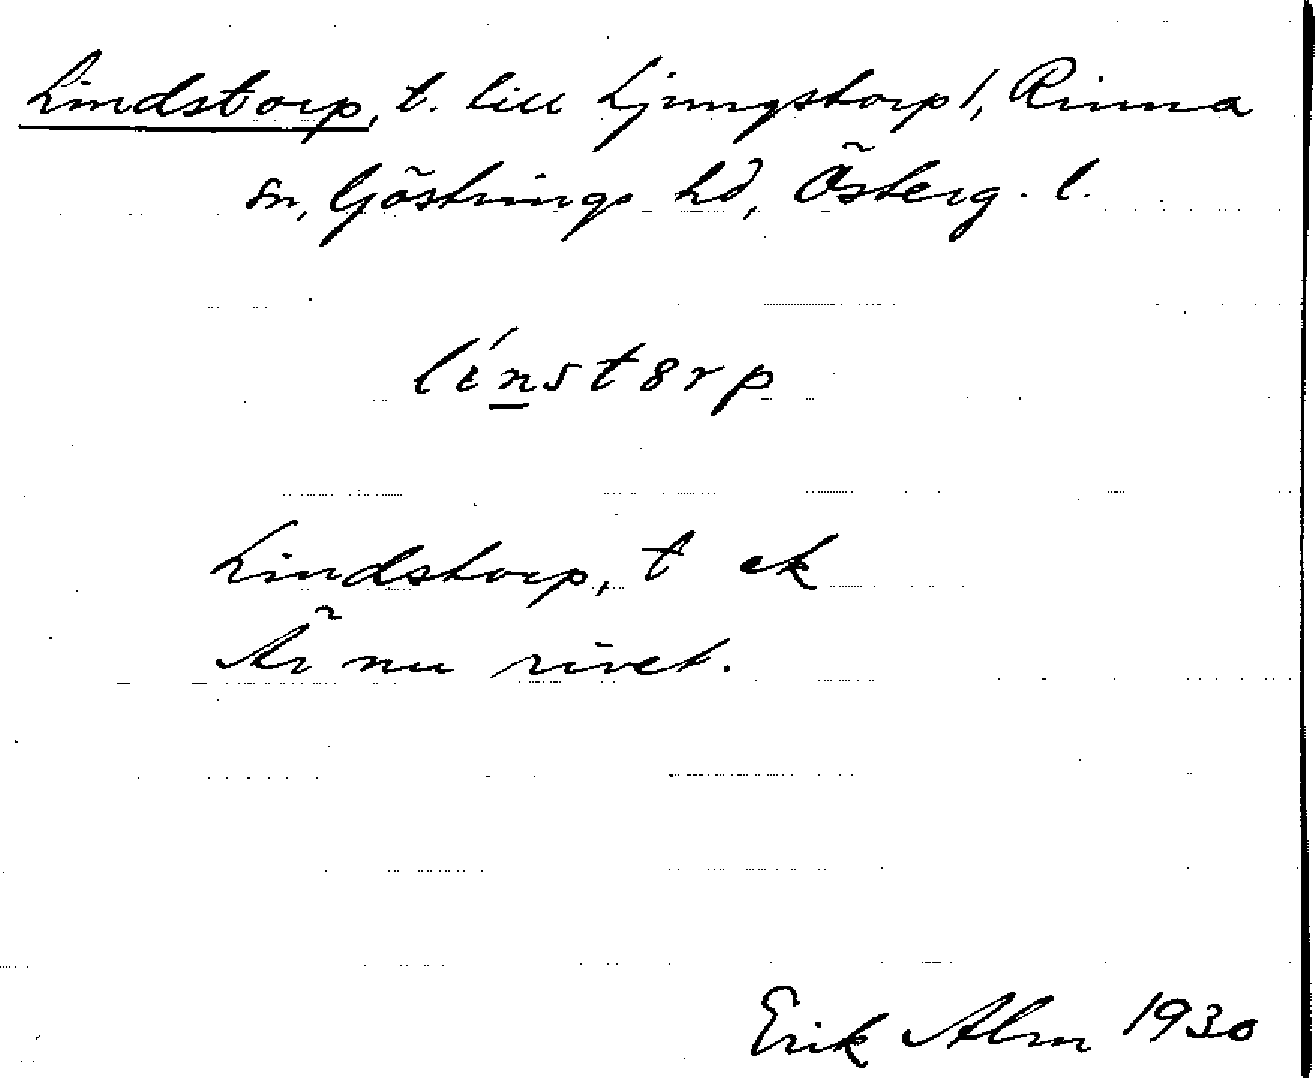 Lindstorp, t. till Ljungstorp 1, Rinna
sn, Göstrings hd, Österg. l.
línst8rp
Lindstorp, t ek
Är nu rivet.
Erik Alm 1930